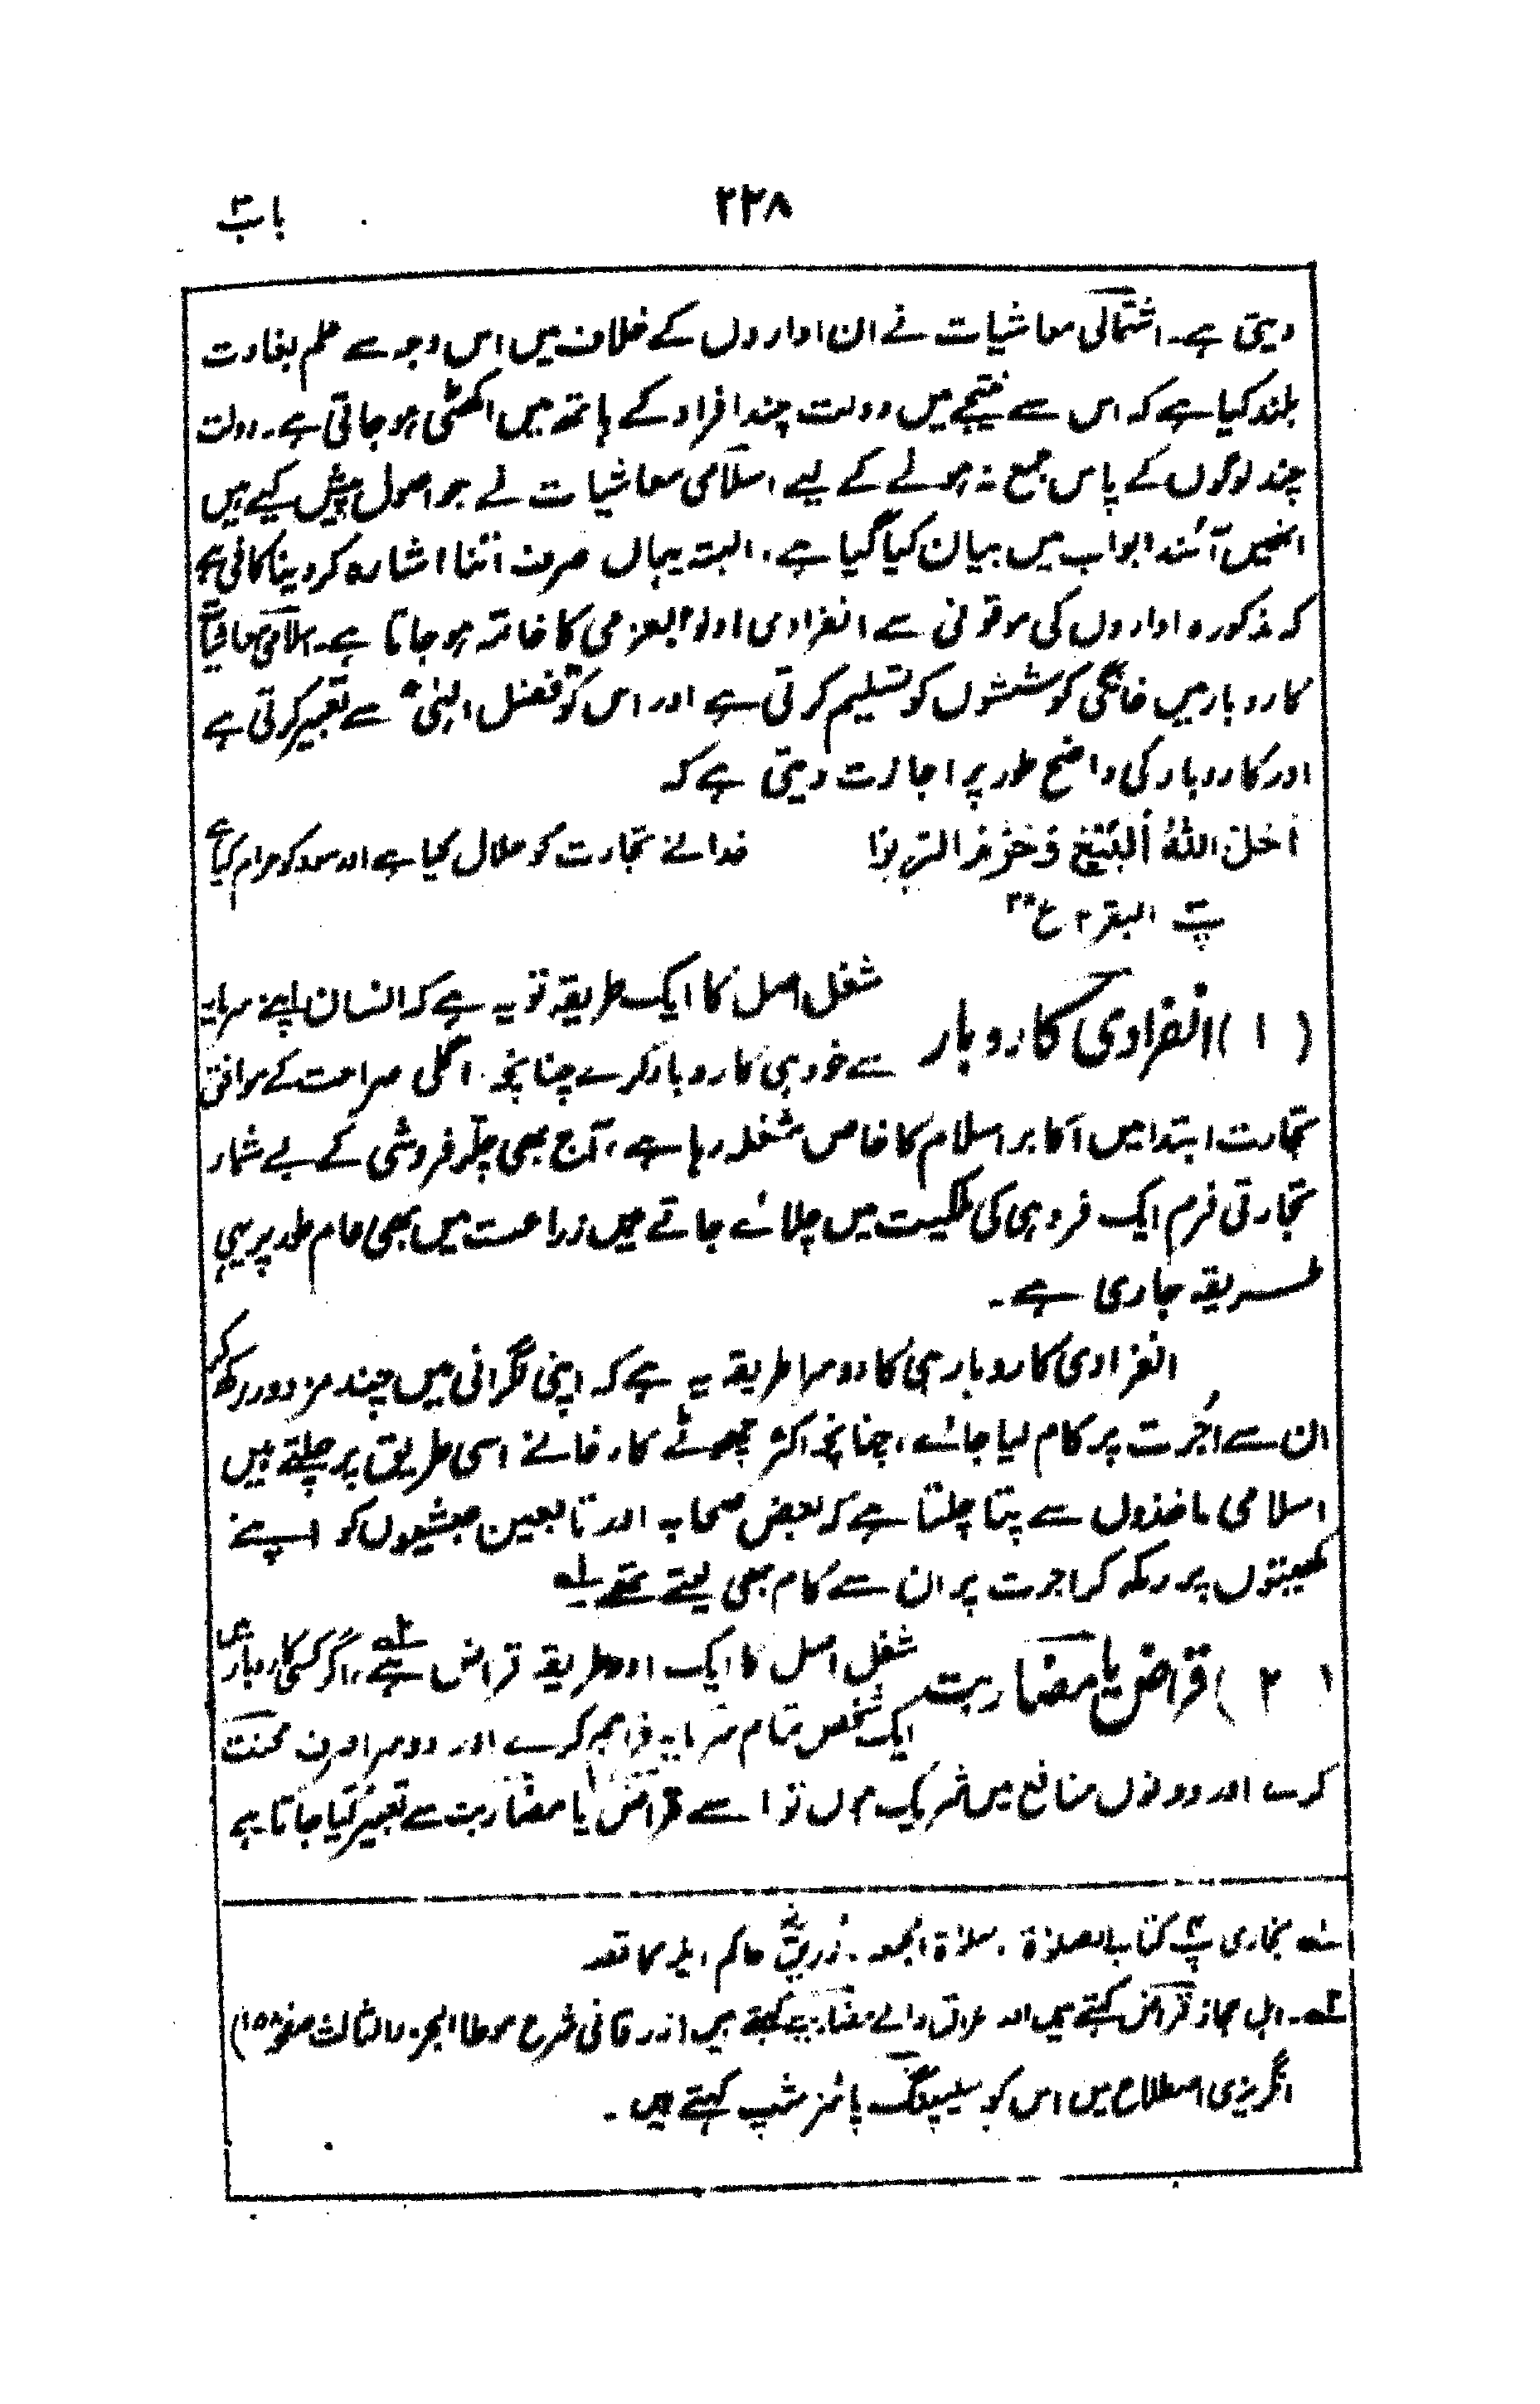 ۲۲۸
باب۳
دیتی ہے۔ اشتمالی معاشیات نے ان اداروں کے خلاف میں اس وجہ سے علم بغاوت
بلند کیا ہے کہ اس سے نتیجے میں دولت چند افراد کے ہاتھ میں اکھٹی ہو جاتی ہے۔ دولت
چند لوگوں کے پاس جمع نہ ہونے کے لیے اسلامی معاشیات نے جو اصول پیش کیے ہیں
انھیں آئندہ ابواب میں بیان کیا گیا ہے، البتہ یہاں صرف اتنا اشارہ کر دینا کافی ہے
کہ مذکورہ اداروں کی موقوفی سے انفرادی اولوالعزمی کا خاتمہ ہو جاتا ہے۔ اسلامی معاشیات
کاروبار میں خانگی کوششوں کو تسلیم کرتی ہے اور اس کو "فضل الہٰی" سے تعبیر کرتی ہے
اور کاروبار کی واضح طور پر اجازت دیتی ہے کہ
اَحَلَّ اللّٰهُ الْبَیْعَ وَحَرَّمَ الرِّبٰوا خدا نے تجارت کو حلال کیا ہے اور سود کو حرام کیا ہے
پ۳ البقرہ ع۳۸
(۱) انفرادی کاروبار شغل اصل کا ایک طریقہ تو یہ ہے کہ انسان اپنے سرمایہ
سے خود ہی کاروبار کرے چنانچہ اگلی صراحت کے موافق
تجارت ابتدا میں اکابر اسلام کا خاص مشغلہ رہا ہے، آج بھی چلّر فروشی کے بے شمار
تجارتی فرم ایک فرد ہی کی ملکیت میں چلائے جاتے ہیں زراعت میں بھی عام طور پر یہی
طریقہ جاری ہے۔
انفرادی کاروبار ہی کا دوسرا طریقہ یہ ہے کہ اپنی نگرانی میں چند مزدور رکھ کر
ان سے اُجرت پر کام لیا جائے، چنانچہ اکثر چھوٹے کارخانے اسی طریق پر چلتے ہیں
اسلامی ماخذوں سے پتا چلتا ہے کہ بعض صحابہ اور تابعین حبشیوں کو اپنے
کھیتوں پر رکھ کر اجرت پر ان سے کام بھی لیتے تھے۔۱؎
(۲) قراض یا مضاربت شغل اصل کا ایک اور طریقہ قراض ہے۲؎، اگر کسی کاروبار میں
ایک شخص تمام سرمایہ فراہم کرے اور دوسرا صرف محنت
کرے اور دونوں منافع میں شریک ہوں تو اسے قراض یا مضاربت سے تعبیر کیا جاتا ہے
۱؎ بخاری پ۴ کتاب الصلوٰۃ، صلاۃ الجمعہ۔ زُریق حاکم ایلہ کا قصہ
۲؎۔ اہل حجاز قراض کہتے ہیں اور عراق والے مضاربت کہتے ہیں (زرقانی شرح موطا الجزء الثالث صفحہ ۱۵۸)
انگریزی اصطلاح میں اس کو سلیپنگ پارٹنر شپ کہتے ہیں۔